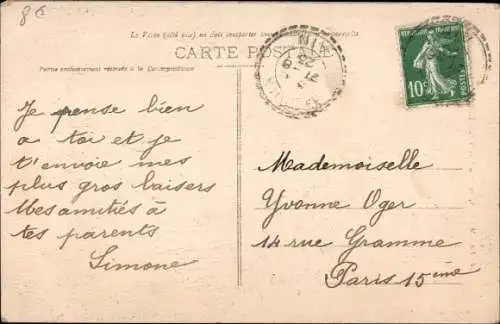 8€
CARTE POSTALE
Partie exclusivement réservée à la Correspondance
REPUBLIQUE FRANÇAISE
10c
POSTES
Je pense bien
a toi et je
t'envoie mes
plus gros baisers
Mes amitiés à
tes parents
Simone
Mademoiselle
Yvonne Oger
14 rue Gramme
Paris 15ème